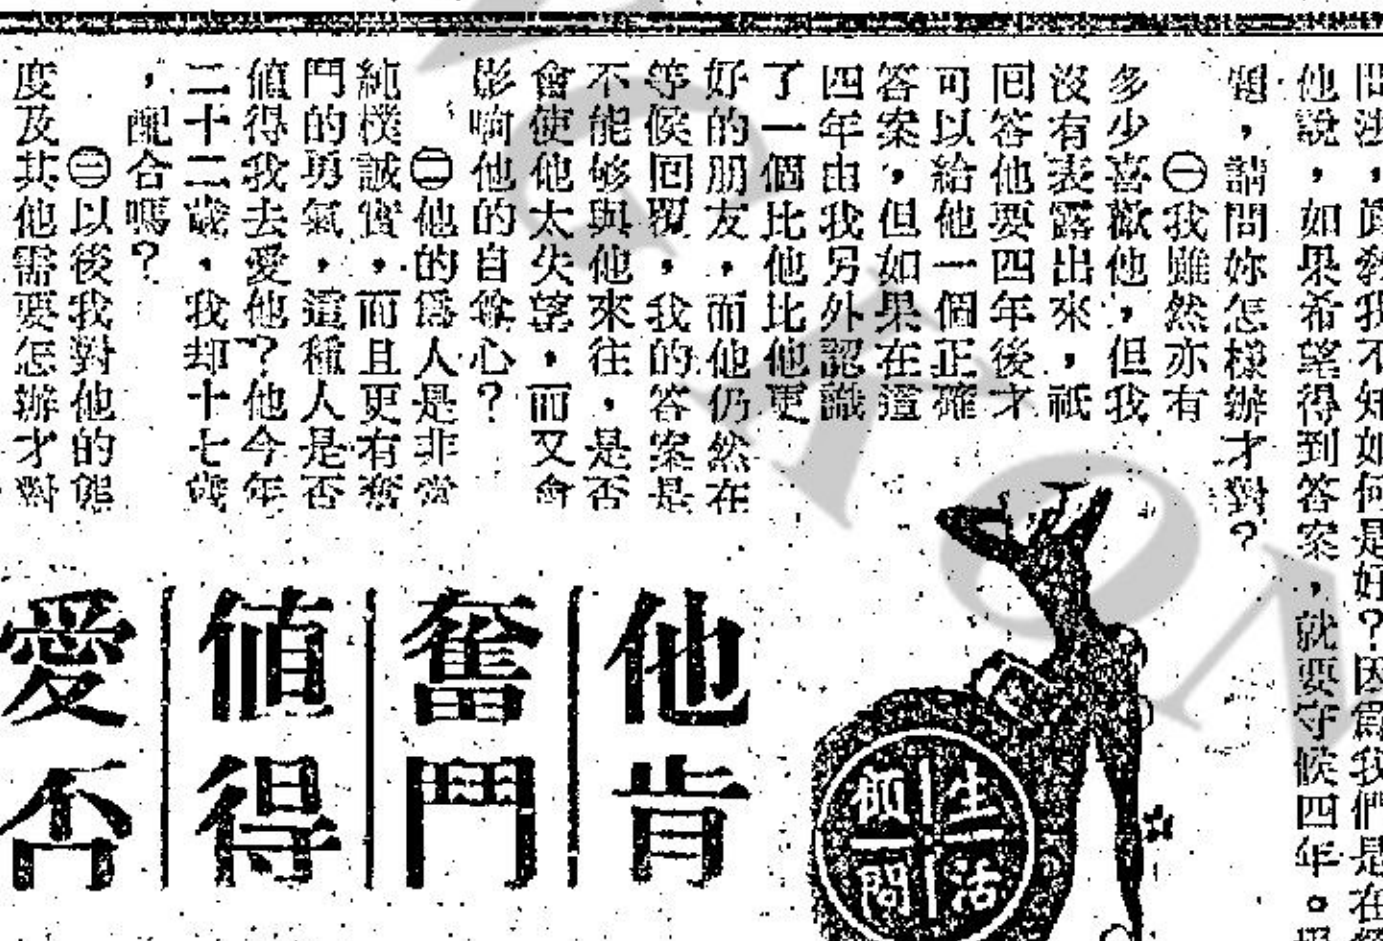 不知如何是好？因爲我們是在
他說，如果希望得到答案，就要守候四年。
題，請問妳怎樣辦才對？
㊀我雖然亦有
多少喜歡他，但我
沒有表露出來，祇
囘答他要四年後才
可以給他一個正確
答案，但如果在這
四年由我另外認識
了一個比他比他更
好的朋友，而他仍然在
等候回覆，我的答案是
不能够與他來往，是否
會使他太失望，而又會
影响他的自尊心？
㊁他的爲人是非常
純樸誠實，而且更有奮
鬥的勇氣，這種人是否
值得我去愛他？他今年
二十二歲，我却十七歲
，配合嗎？
㊂以後我對他的態
度及其他需要怎辦才對
他肯
奮鬥
值得
愛否
生活
顧問